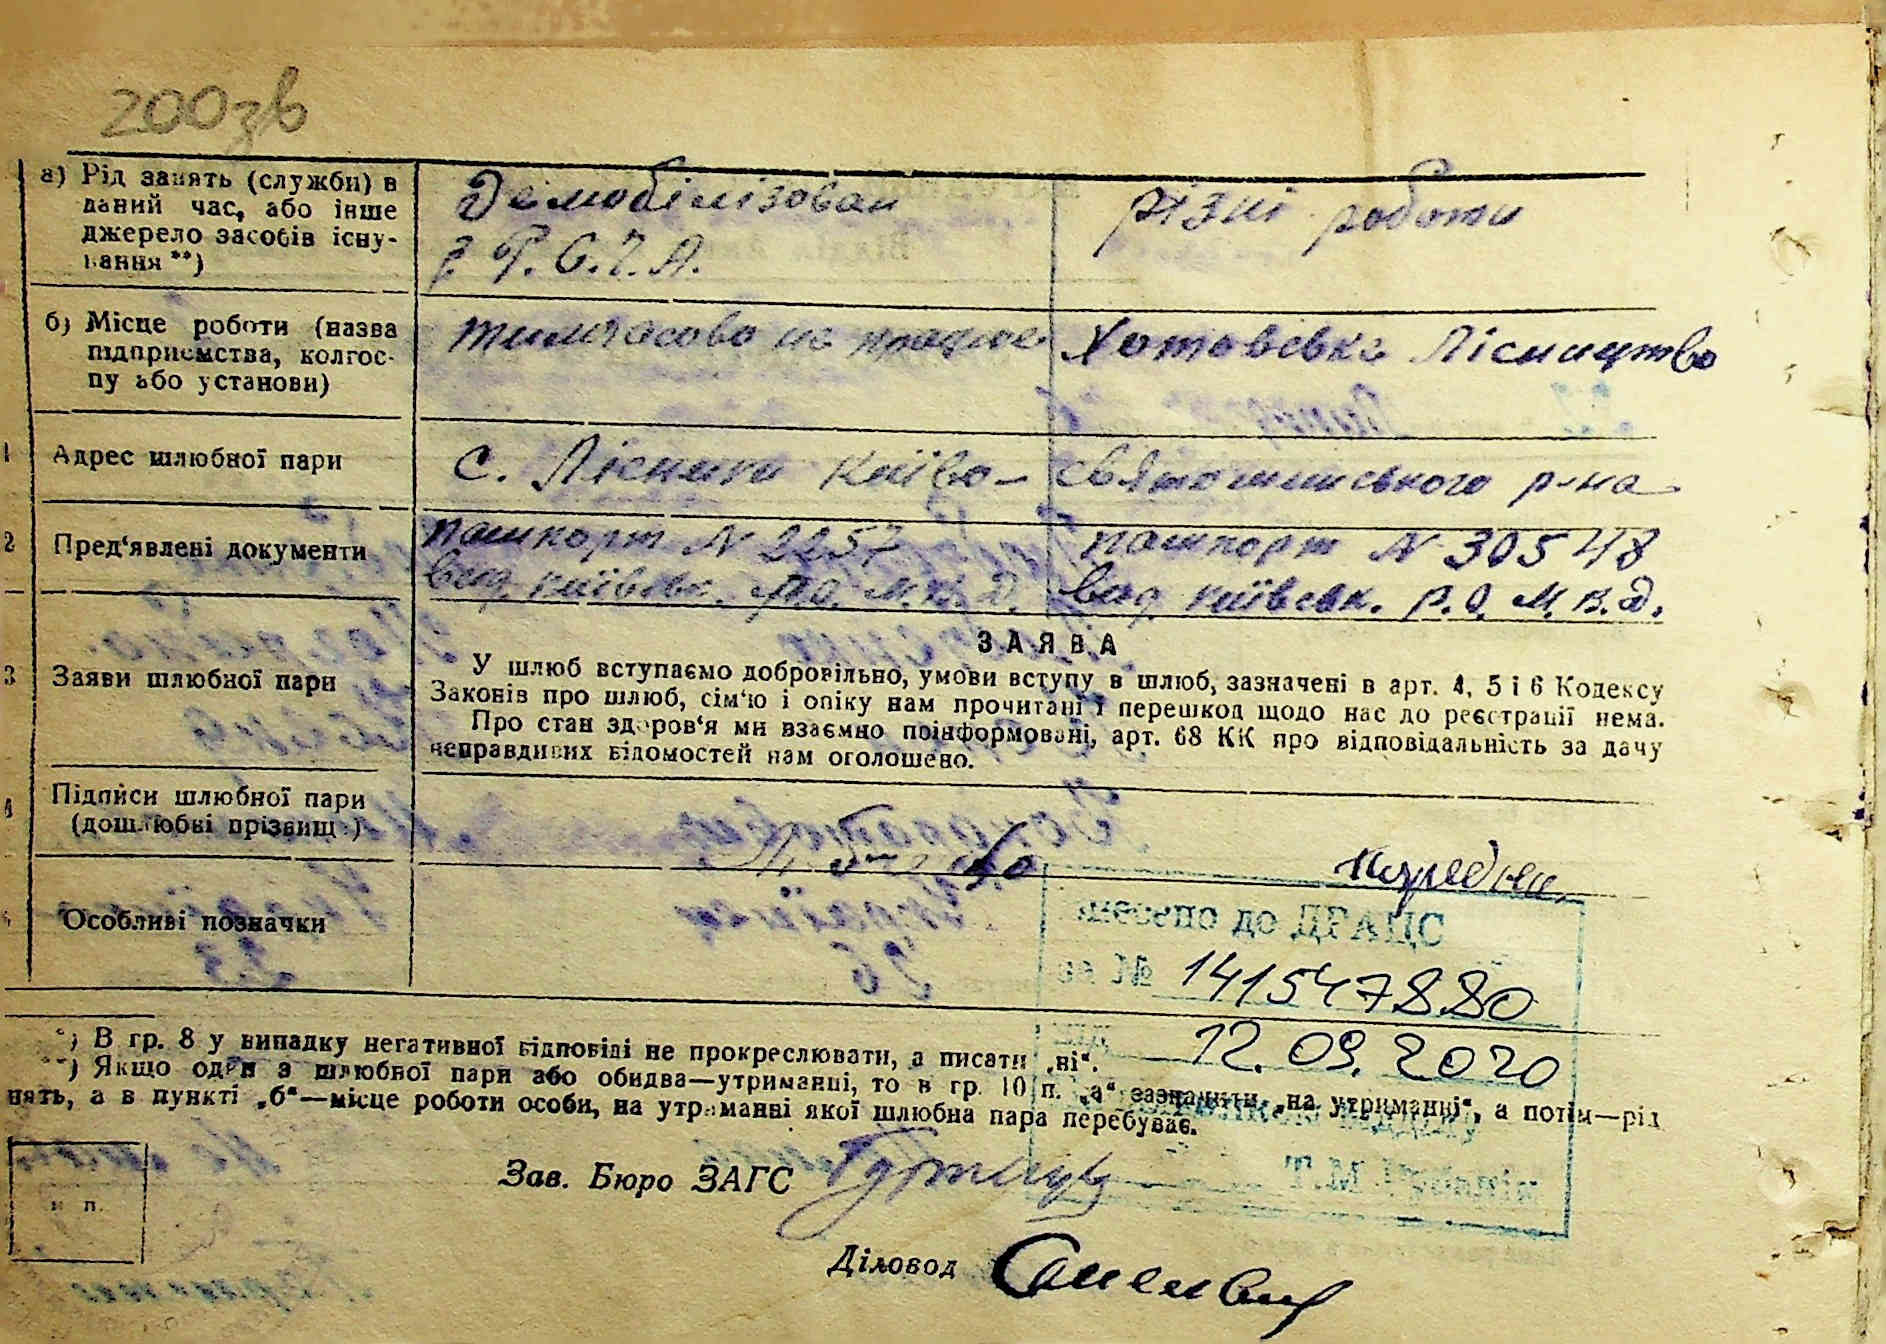 200зв
а) Рід занять (служби) в
даний час, або інше
джерело засобів існу-
вання **)
Демобілізован
з Р.С.Ч.А.
різні роботи
б) Місце роботи (назва
підприємства, колгос-
пу або установи)
тимчасово не працює
Хотовівке Лісництво
1 Адрес шлюбної пари
с. Лісники Києво-
Святошинського р-на
2 Пред‘явлені документи
пашпорт N 2257
вид. київськ. М.В.Д.
пашпорт N 30548
вид. київськ. Р.О. М.В.Д.
3 Заяви шлюбної пари
ЗАЯВА
У шлюб вступаємо добровільно, умови вступу в шлюб, зазначені в арт. 4, 5 і 6 Кодексу
Законів про шлюб, сім‘ю і опіку нам прочитані і перешкод щодо нас до реєстрації нема.
Про стан здоров‘я ми взаємно поінформовані, арт. 68 КК про відповідальність за дачу
неправдивих відомостей нам оголошено.
4 Підписи шлюбної пари
(дошлюбні прізвища)
Особливі позначки
внесено до ДРАЦС
за № 141547880
від 12.09.2020
*) В гр. 8 у випадку негативної відповіді не прокреслювати, а писати „ні“.
**) Якщо один з шлюбної пари або обидва—утриманці, то в гр. 10 п. „а“ зазначити „на утриманні“, а потім—рід
нять, а в пункті „б“—місце роботи особи, на утриманні якої шлюбна пара перебуває.
відділу
Т.М.
Зав. Бюро ЗАГС
м п.
Діловод